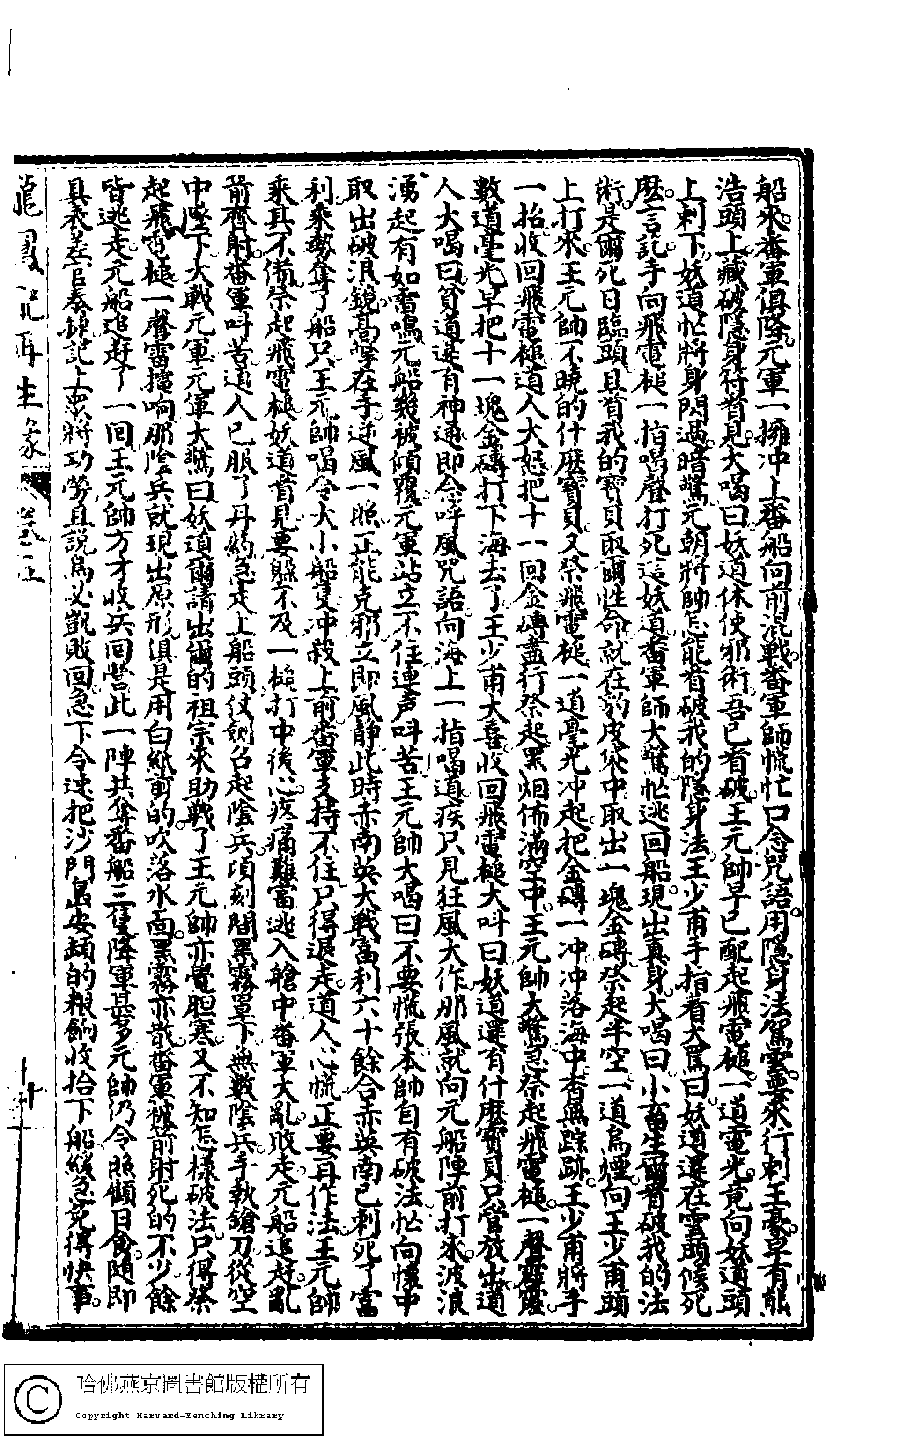 船來番軍俱降元軍一擁冲上番船向前混戰番軍師慌忙口念咒語用隱身法駕雲來行刺王豪早有熊
浩頭上藏破隱身符看見大喝曰妖道休使邪術吾已看破王元帥早已配起飛電槌一道電光竟向妖道頭
上刺下妖道忙將身閃過暗驚元朝將帥怎能看破我的隱身法王少甫手指着大罵曰妖道還在雲頭候死
麽言訖手向飛電槌一指喝聲打死這妖道番軍師大驚忙逃回船現出真身大喝曰小畜生爾看破我的法
術是爾死日臨頭且看我的寶貝取爾性命就在豹皮袋中取出一塊金磚祭起半空一道烏煙向王少甫頭
上打來王元帥不曉的什麽寶貝又祭飛電槌一道毫光冲起把金磚一冲冲落海中杳無踪跡王少甫將手
一招收回飛電槌道人大怒把十一回金磚盡行祭起黑烟佈滿空中王元帥大驚急祭起飛電槌一聲霹靂
數道毫光早把十一塊金磚打下海去了王少甫大喜收回飛電槌大叫曰妖道還有什麽寶貝只管放出道
人大喝曰貧道還有神通即念呼風咒語向海上一指喝道疾只見狂風大作那風就向元船陣前打來波浪
湧起有如雷鳴元船幾被傾覆元軍站立不住連声叫苦王元帥大喝曰不要慌張本帥自有破法忙向懷中
取出破浪鏡高擎在手逆風一照正能克邪立即風靜此時赤南英大戰富利六十餘合赤英南已刺死了富
利乘勢奪了船只王元帥喝令大小船隻冲殺上前番軍支持不住只得退走道人心慌正要再作法王元帥
乘其不備祭起飛電槌妖道看見要躲不及一槌打中後心疼痛難當逃入艙中番軍大亂敗走元船追赶亂
箭齊射番軍叫苦道人已服了丹藥急走上船頭仗劍召起陰兵頃刻間黑霧罩下無數陰兵手執鎗刀從空
中墜下大戰元軍元軍大驚曰妖道爾請出爾的祖宗來助戰了王元帥亦覺胆寒又不知怎樣破法只得祭
起飛電槌一聲雷擋响那陰兵就現出原形俱是用白紙剪的吹落水面黑霧亦散番軍被箭射死的不少餘
皆逃走元船追赶了一回王元帥方才收兵回營此一陣共奪番船三隻降軍甚多元帥仍令照顧日食隨即
具表差官奏捷記上眾將功勞且說烏必凱敗回急下令速把沙門島安頓的粮餉收拾下船緩急完得快事
龍鳳配再生緣
卷
十
哈佛燕京圖書館版權所有
Copyright Harvard-Yenching Library